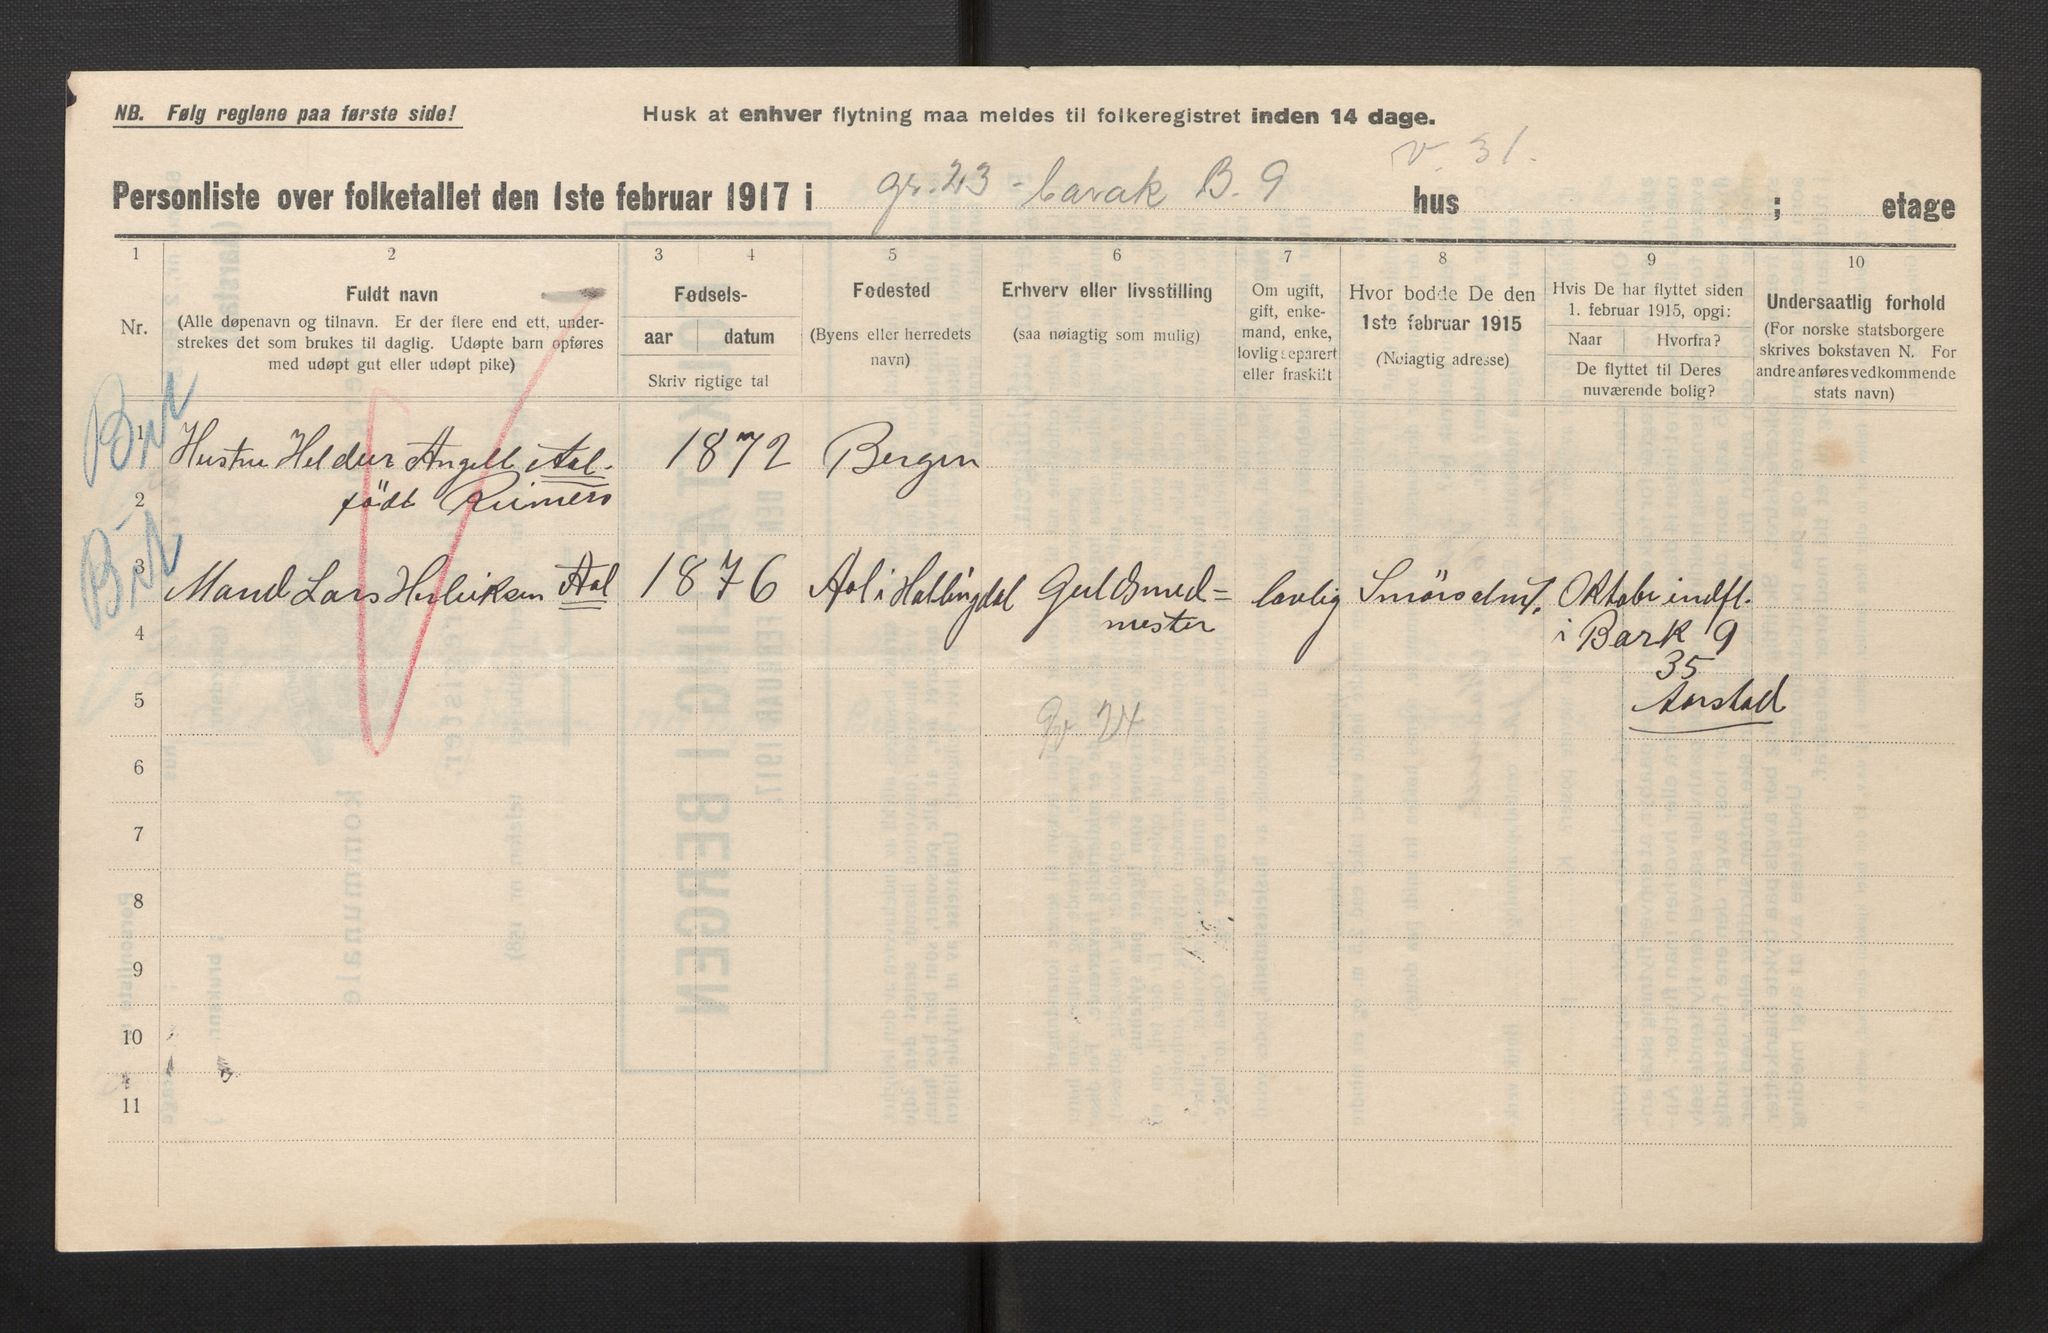 NB. Følg reglene paa første side!
Husk at enhver flytning maa meldes til folkeregistret inden 14 dage.
v. 31.
Personliste over folketallet den 1ste februar 1917 i gr. 23 - barak B. 9 hus ; etage
1 2 3 4 5 6 7 8 9 10
Nr.
Fuldt navn
(Alle døpenavn og tilnavn. Er der flere end ett, under-
strekes det som brukes til daglig. Udøpte barn opføres
med udøpt gut eller udøpt pike)
Fødsels-
aar datum
Skriv rigtige tal
Fødested
(Byens eller herredets
navn)
Erhverv eller livsstilling
(saa nøiagtig som mulig)
Om ugift,
gift, enke-
mand, enke,
lovlig separert
eller fraskilt
Hvor bodde De den
1ste februar 1915
(Nøiagtig adresse)
Hvis De har flyttet siden
1. februar 1915, opgi:
Naar Hvorfra?
De flyttet til Deres
nuværende bolig?
Undersaatlig forhold
(For norske statsborgere
skrives bokstaven N. For
andre anføres vedkommende
stats navn)
1
Hustru Angell Aal - 1872 Bergen
2
född Reimers
3
Mand Lars Henriksen Aal 1876 Aal i Hallingdal Guldsmed= lovlig Oktober indfl.
4
mester i Bark 9
35
5
Aarstad
24
6
7
8
9
10
11